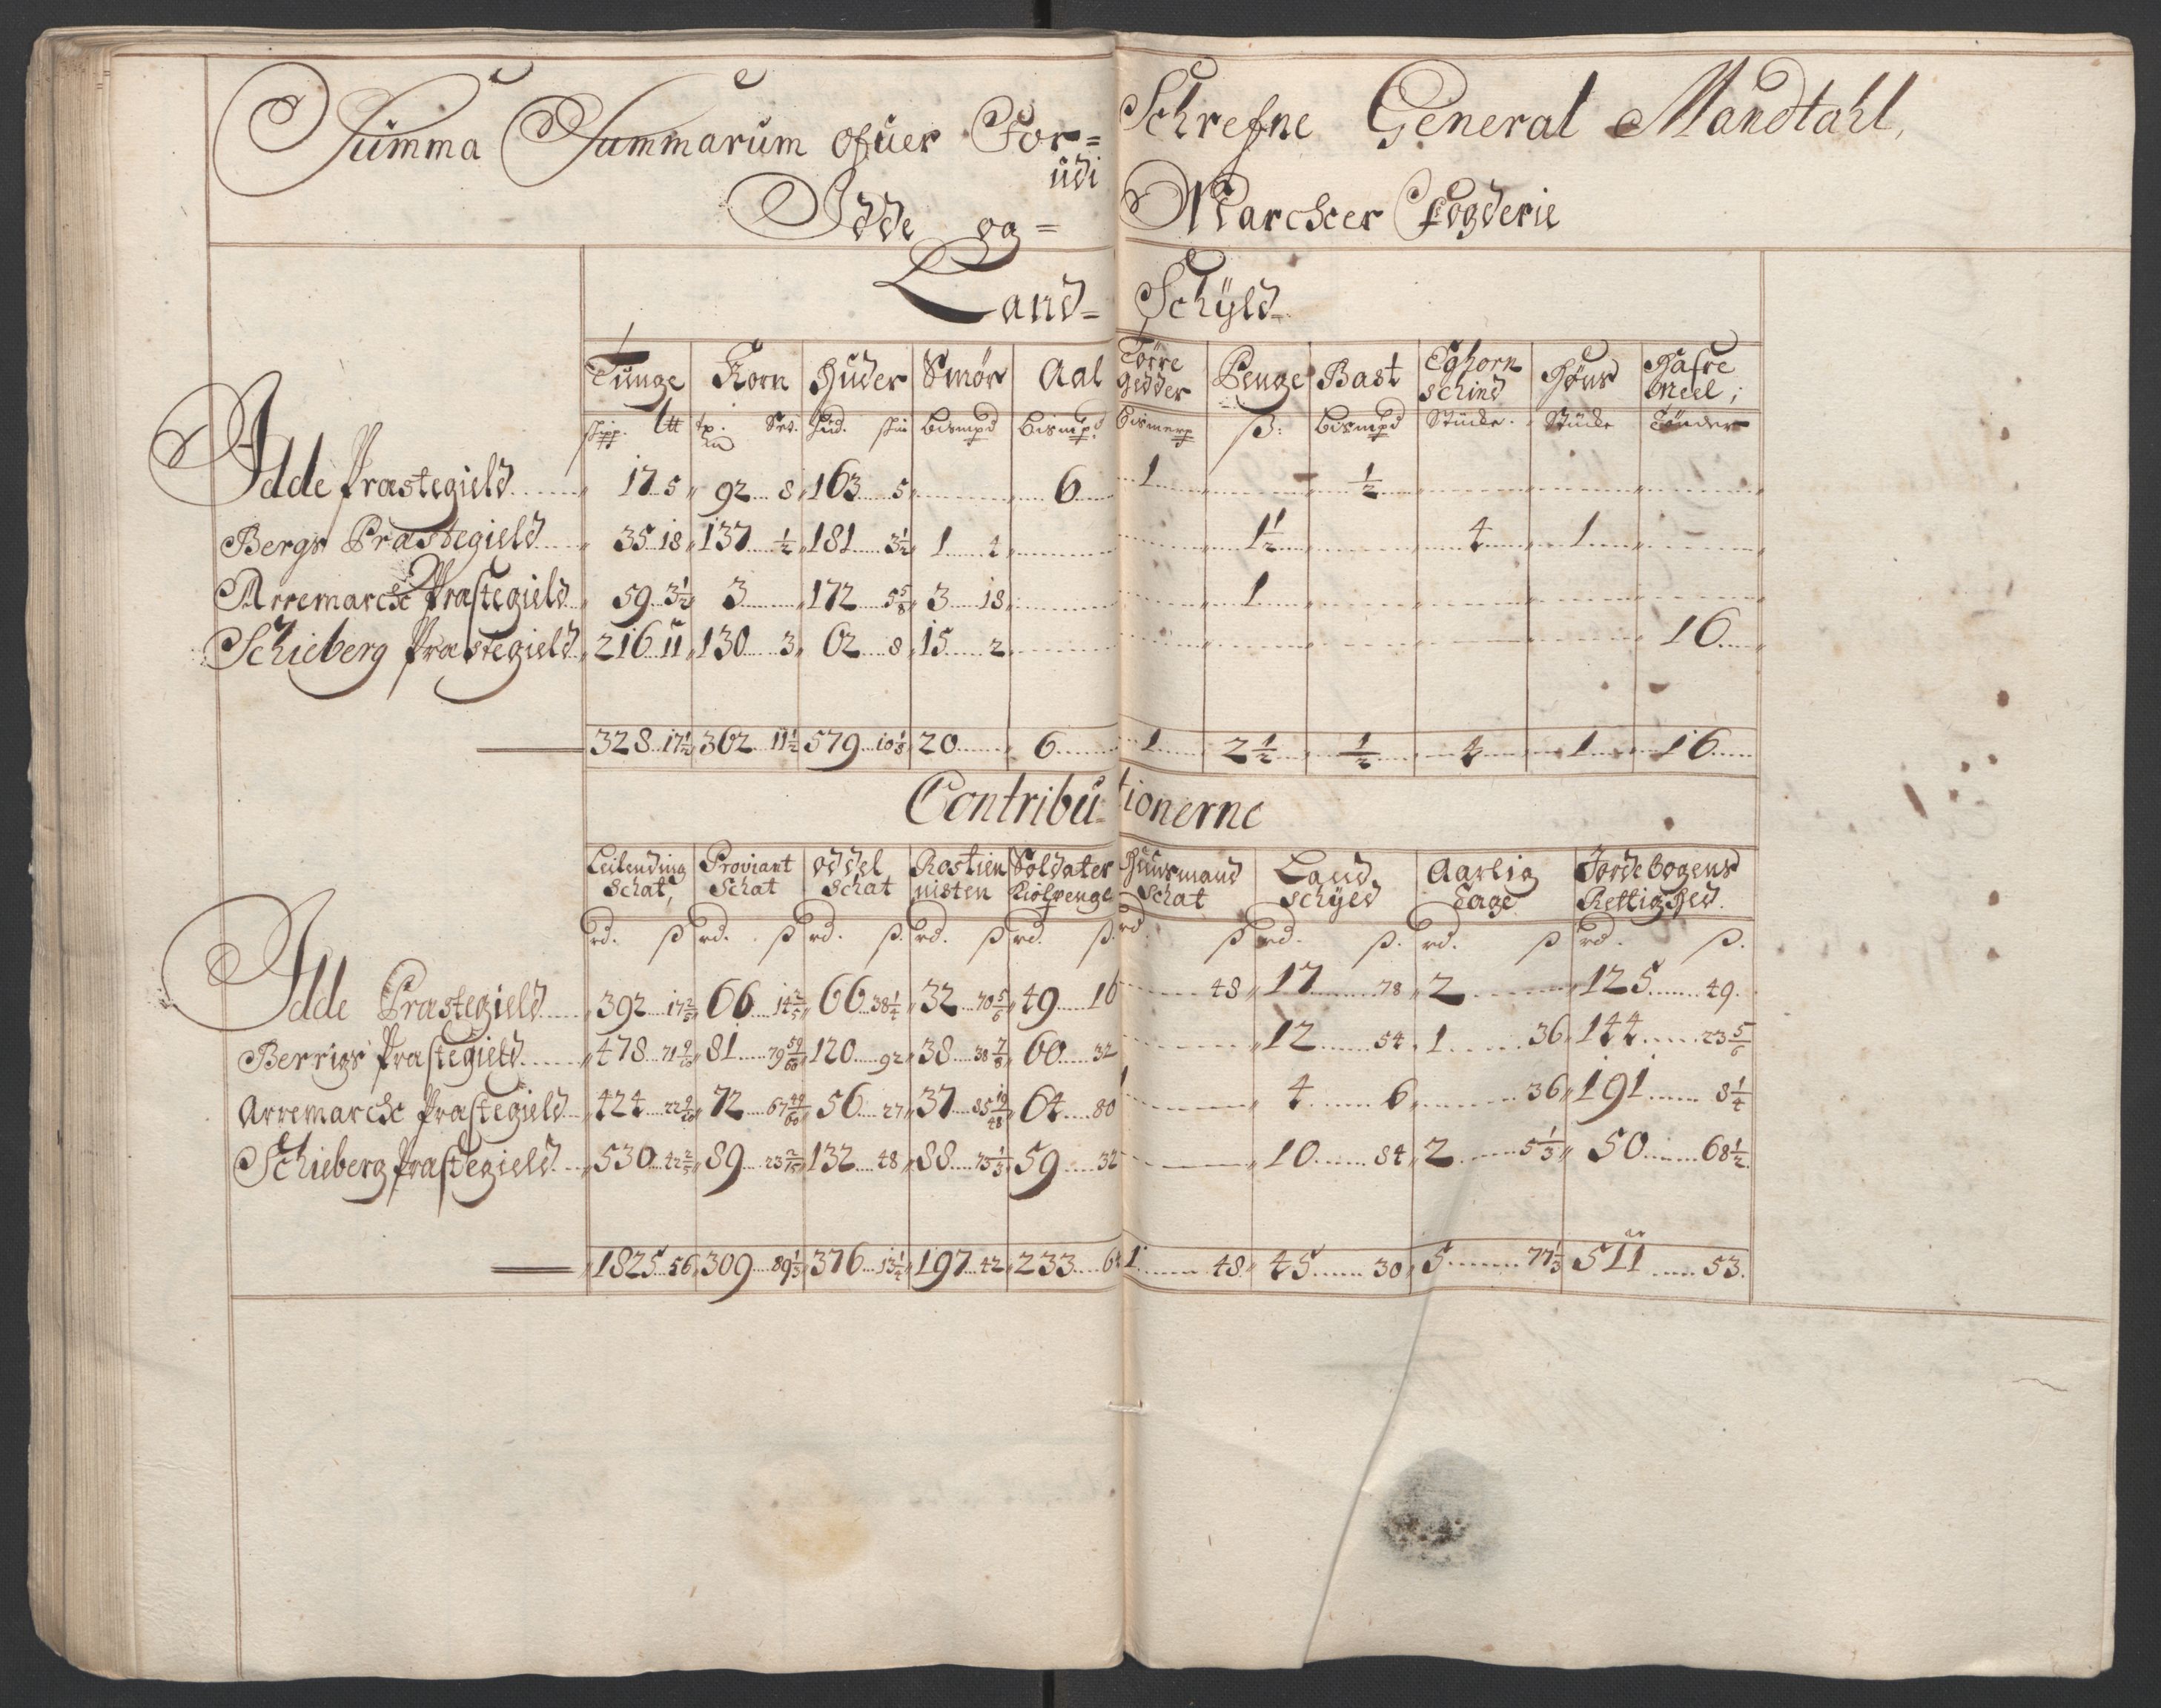 Summa Summarum ofuer For= Schrefne General Mandtahl,
udi
Idde og= Marcher Fogderie
Land= Schÿld
Tunge Korn Huder Smør Aal Tørre Gedder Penge Bast Eghorn Schind Høns Hafre Meel;
Schipp. Ltt tr. Set. Hud. Schin Bismpd Bismpd Bismerp ß: Bismpd Stücke. Stücke Tønder
Idde Præstegield 17 5 92 8 163 5 6 1 ½
Bergs Præstegield 35 18 137 ½ 181 3½ 1 4 1½ 4 1
Arremarche Præstegield 59 3½ 3 172 5⅝ 3 18 1
Schieberg Præstegield 216 11 130 3 62 8 15 2 16
328 17½ 362 11½ 579 10⅛ 20 6 1 2½ ½ 4 1 16
Contributionerne
Leilending Schat, Proviant Schat Oddel Schat Rostien nisten Soldater Kiolpenge Huusmand Schat Land Schyld Aarlig Tage Jordebogens Rettighed.
rd. ß rd. ß rd. ß. rd. ß rd. ß. rd ß rd. ß. rd. ß rd. ß.
Idde Præstegield 392 17⅖ 66 14⅖ 66 38¼ 32 70⅚ 49 16 48 17 78 2 125 49.
Berrigs Præstegield 478 71 9/20 81 79 59/60 120 92 38 38⅞ 60 32 12 54 1 36 144 23⅚
Arremarche Præstegield 424 22 9/20 72 67 49/60 56 27 37 85 19/48 64 80 1 4 6 36 191 8¼
Schieberg Præstegield 530 42⅖ 89 23 2/15 132 48 88 73⅓ 59 32 10 84 2 5⅓ 50 68½
1825 56 309 89⅓ 376 13¼ 197 42 233 64 1 48 45 30 5 77⅓ 511 53.